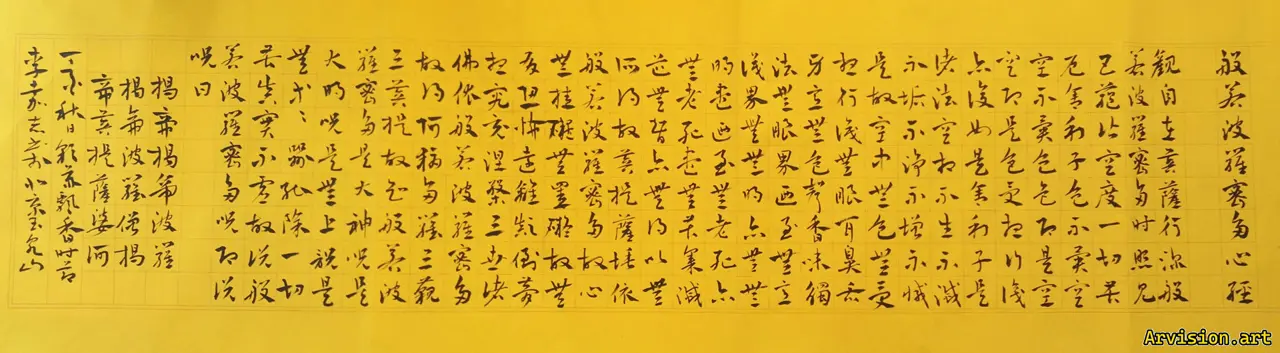 般若波羅蜜多心經
觀自在菩薩行深般
若波羅蜜多時照見
五蘊皆空度一切苦
厄舍利子色不異空
空不異色色即是空
空即是色受想行識
亦復如是舍利子是
諸法空相不生不滅
不垢不淨不增不減
是故空中無色無受
想行識無眼耳鼻舌
身意無色聲香味觸
法無眼界乃至無意
識界無無明亦無無
明盡乃至無老死亦
無老死盡無苦集滅
道無智亦無得以無
所得故菩提薩埵依
般若波羅蜜多故心
無挂礙無罣礙故無
有恐怖遠離顛倒夢
想究竟涅槃三世諸
佛依般若波羅蜜多
故得阿耨多羅三藐
三菩提故知般若波
羅蜜多是大神咒是
大明咒是無上咒是
無等等咒能除一切
苦真實不虛故說般
若波羅蜜多咒即說
咒曰
揭帝揭帝波羅
揭帝波羅僧揭
帝菩提薩婆訶
秋日飄香时节
李志北京玉泉山
Arvision.art